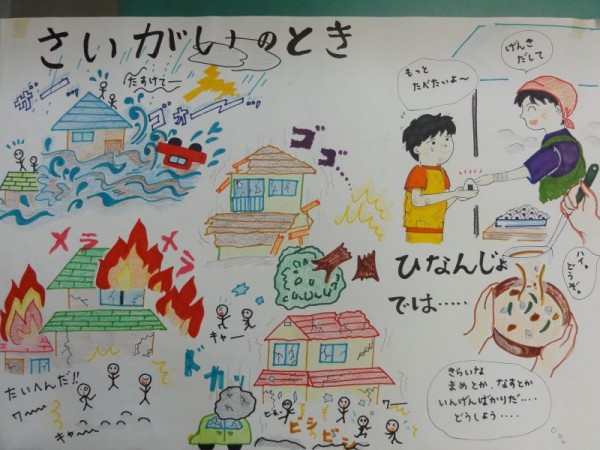 さいがいのとき
ザー
たすけてー
ゴォー
ゴゴ..
メラ
メラ
たいへんだ!!
ワー
キャー
キャー
ドカッ
ビシ
ビシ
ワー
げんき
だして
もっと
たべたいよ〜
ハイ。
どうぞ。
ひなんじょ
では‥‥‥
きらいな
まめとか、なすとか
いんげんばかりだ‥‥
どうしよう‥‥